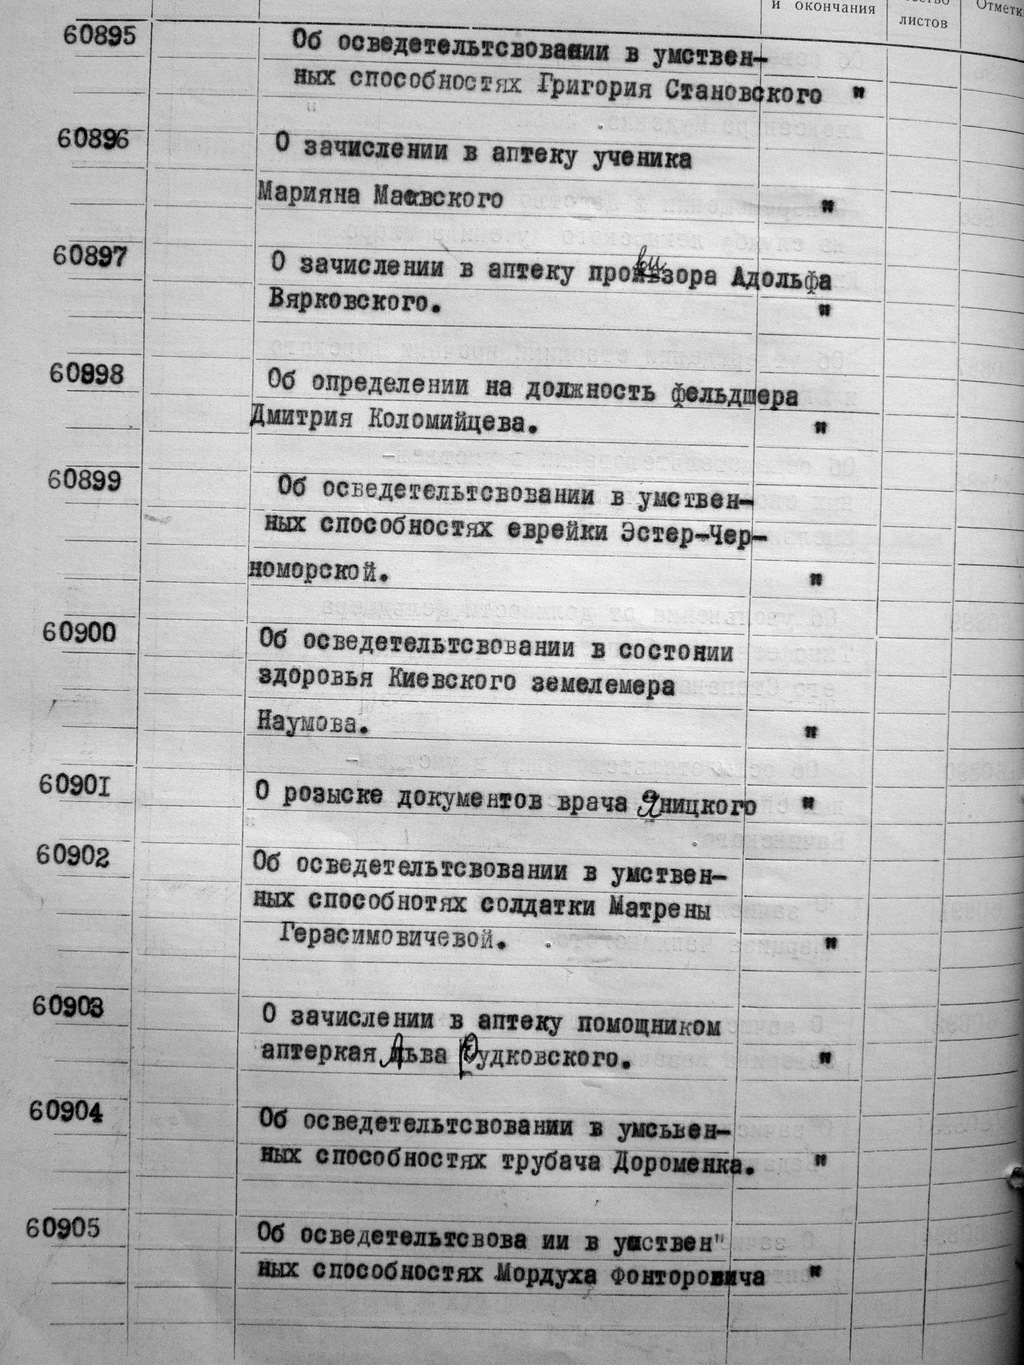 и окончания
листов
Отметк
60895
Об осведетельтсвовании в умствен-
ных способностях Григория Становского "
60896
О зачислении в аптеку ученика
Марияна Маевского "
60897
О зачислении в аптеку провизора Адольфа
Вярковского. "
60898
Об определении на должность фельдшера
Дмитрия Коломийцева. "
60899
Об осведетельтсвовании в умствен-
ных способностях еврейки Эстер-Чер-
номорской. "
60900
Об осведетельтсвовании в состонии
здоровья Киевского землемера
Наумова. "
60901
О розыске документов врача Яницкого "
60902
Об осведетельтсвовании в умствен-
ных способнотях солдатки Матрены
Герасимовичевой. "
60903
О зачислении в аптеку помощником
аптеркая Льва Рудковского. "
60904
Об осведетельтсвовании в умсьвен-
ных способностях трубача Дороменка. "
60905
Об осведетельтсвова ии в умствен"
ных способностях Мордуха Фонторовича "